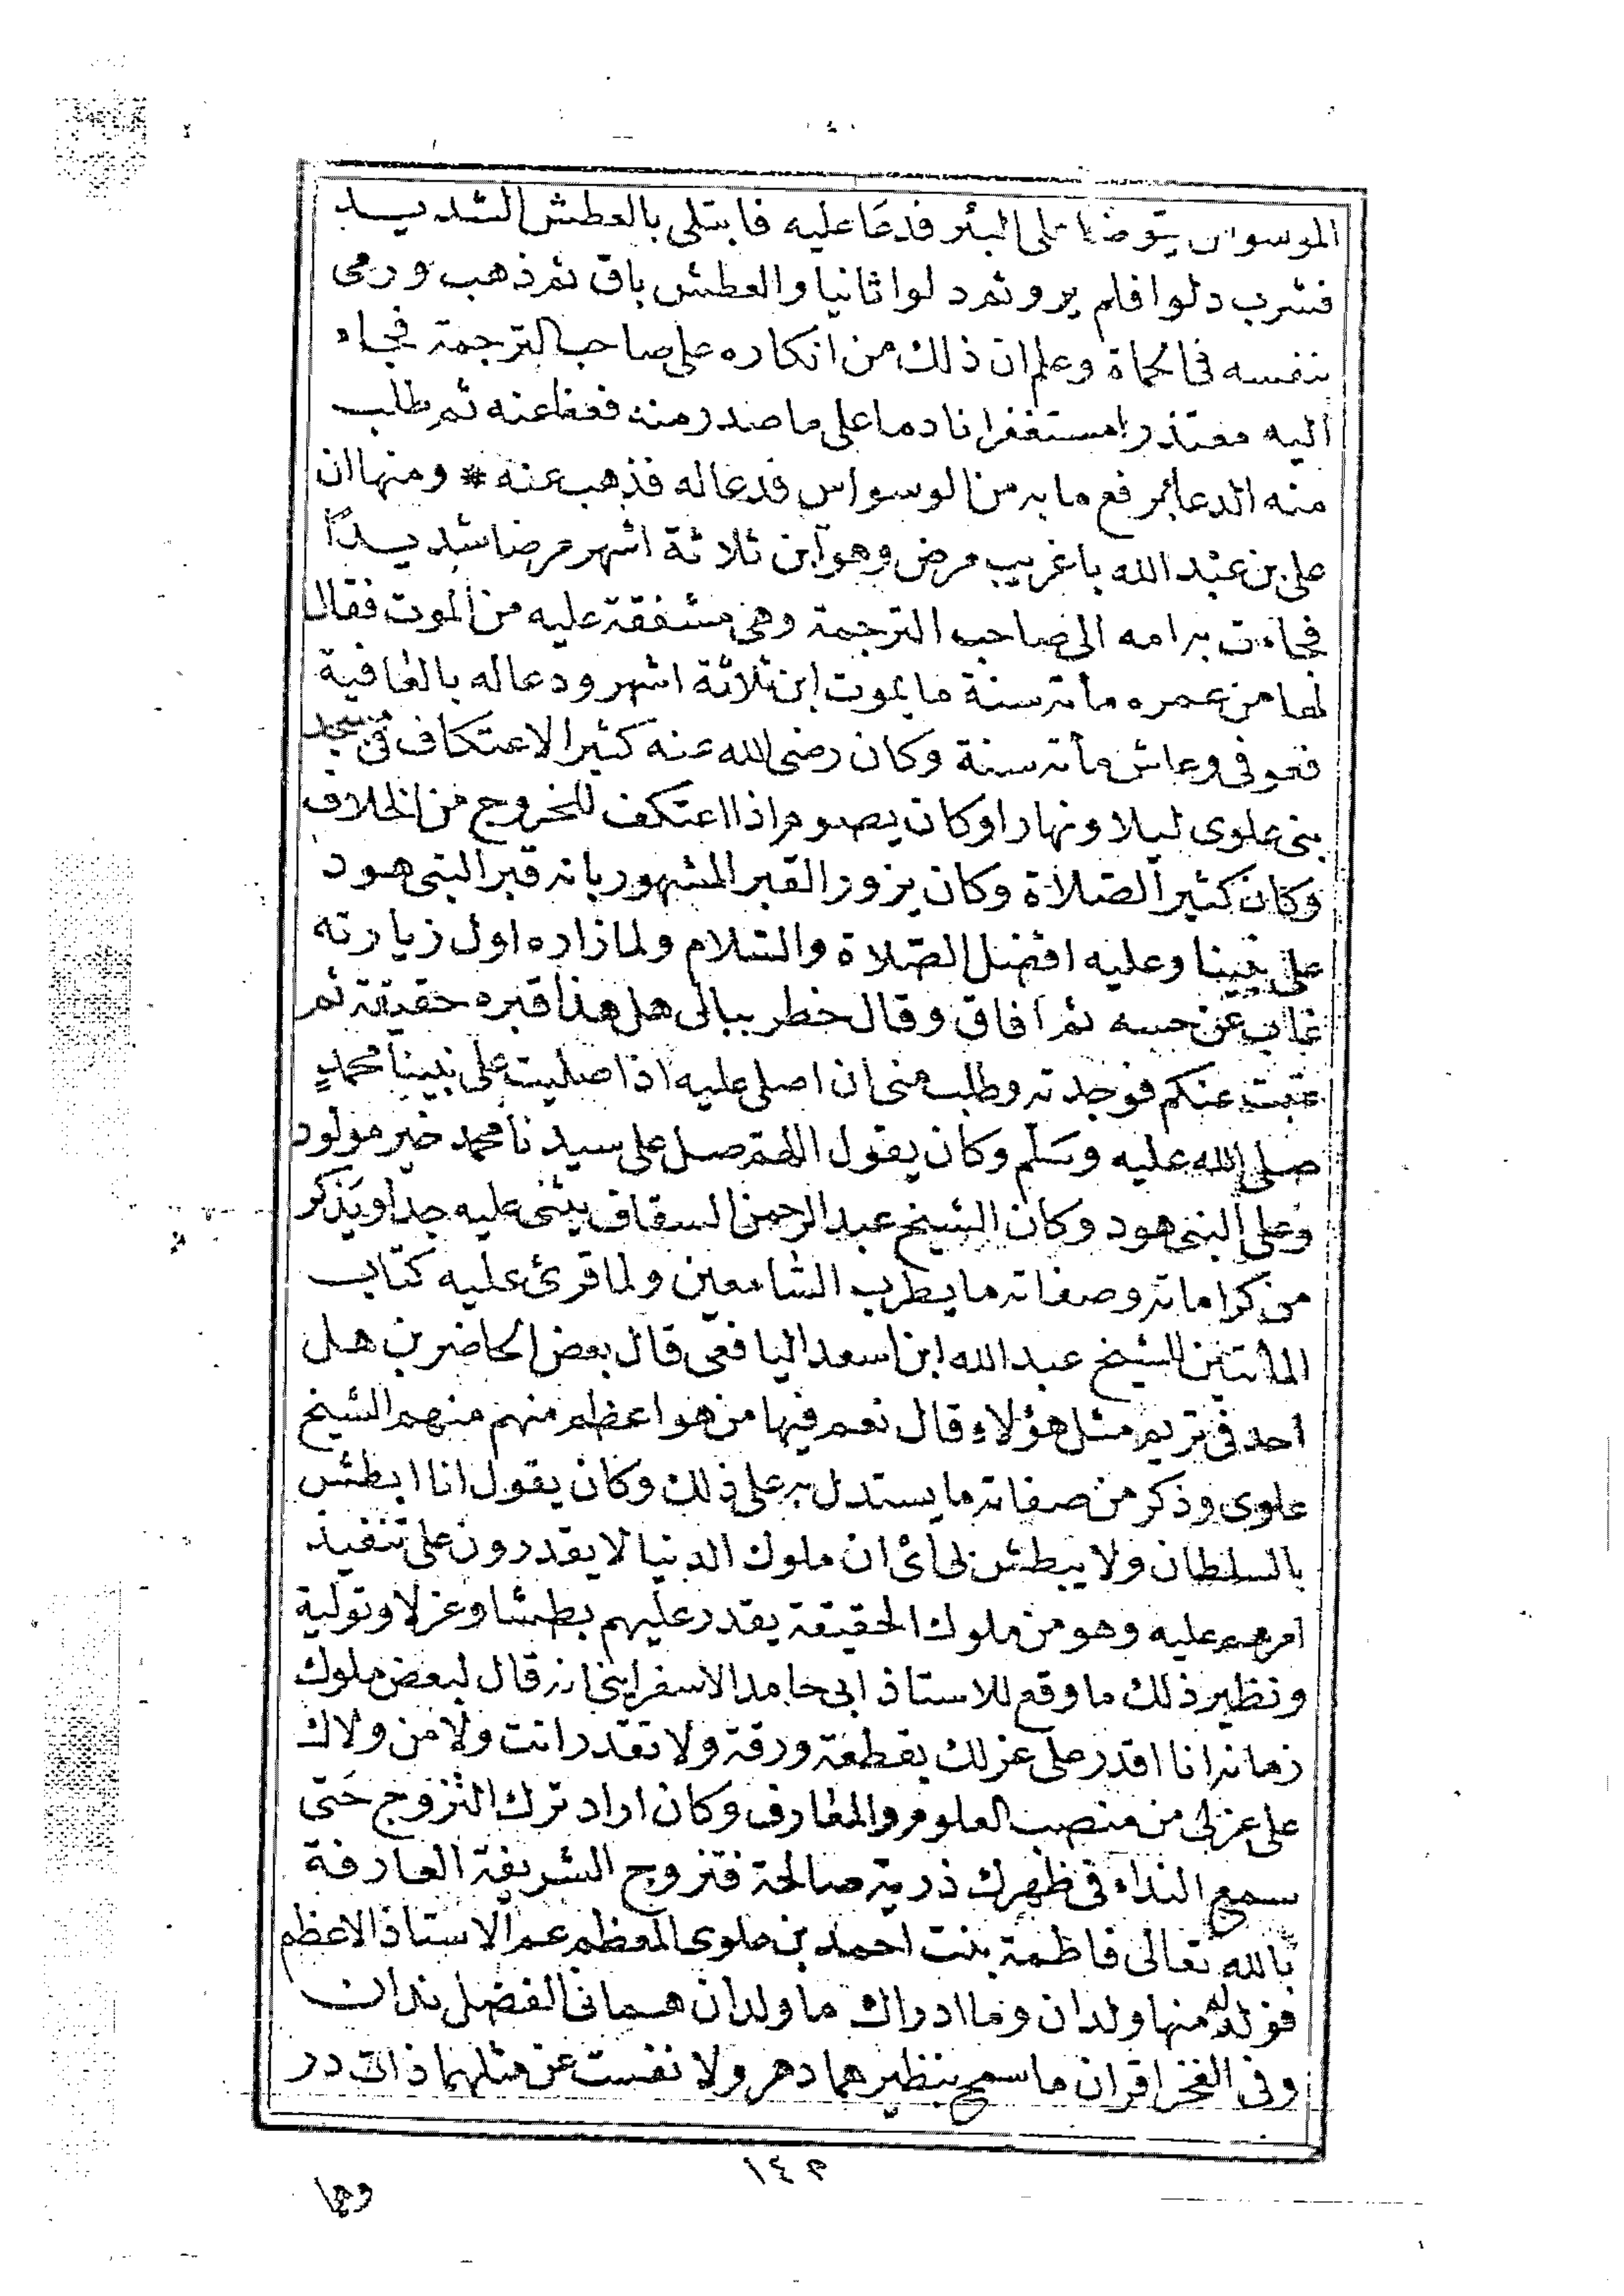 الموسوس يتوضا على البئر فدعا عليه فابتلى بالعطش الشديد
فشرب دلوا فلم يرو ثم دلوا ثانيا والعطش باق ثم ذهب ورمى
بنفسه فى الحماة وعلم ان ذلك من انكاره على صاحب الترجمة فجاء
اليه معتذرا مستغفرا نادما على ما صدر منه فعفا عنه ثم طلب
منه الدعا برفع ما به من الوسواس فدعا له فذهب عنه * ومنها ان
على بن عبد الله باغريب مرض وهو ابن ثلاثة اشهر مرضا شديدًا
فجاءت به امه الى صاحب الترجمة وهى مشفقة عليه من الموت فقال
لها من عمره مأته سنة ما يموت ابن ثلاثة اشهر ودعا له بالعافية
فعوفى وعاش مأته سنة وكان رضى الله عنه كثير الاعتكاف فى مسجد
بنى علوى ليلا ونهارا وكان يصوم اذا اعتكف للخروج من الخلاف
وكان كثير الصّلاة وكان يزور القبر المشهور بانه قبر النبى هود
على نبينا وعليه افضل الصّلاة والسّلام ولما زاره اول زيارته
غاب عن حسه ثم افاق وقال خطر ببالى هل هذا قبره حقيقة ثم
غبت عنكم فوجدته وطلب منى ان اصلى عليه اذا صليت على نبينا محمدٍ
صلى الله عليه وسَلّم وكان يقول اللهمّ صل على سيدنا محمد خير مولود
وعلى النبى هود وكان الشيخ عبد الرحمن السقاف يثنى عليه جدا ويَذكر
من كراماته وصفاته ما يطرب السّامعين ولما قرئ عليه كتاب
المأتين للشيخ عبد الله ابن اسعد اليافعى قال بعض الحاضرين هل
احد فى تريم مثل هؤلاء قال نعم فيها من هو اعظم منهم منهم الشيخ
علوى وذكر من صفاته ما يستدل به على ذلك وكان يقول انا ابطش
بالسلطان ولا يبطش بى اى ان ملوك الدنيا لا يقدرون على تنفيذ
امرهم عليه وهو من ملوك الحقيقة يقدر عليهم بطشا وعزلا وتولية
ونظير ذلك ما وقع للاستاذ ابى حامد الاسفراينى انه قال لبعض ملوك
زمانه انا اقدر على عزلك بقطعة ورقة ولا تقدر انت ولا من ولاك
على عزلى من منصب العلوم والمعارف وكان اراد ترك التزوج حَتى
سمع النداء فى ظهرك ذرية صالحة فتزوج الشريفة العارفة
بالله تعالى فاطمة بنت احمد بن علوى المعظم عم الاستاذ الاعظم
فولد له منها ولدان وما ادراك ما ولدان هما فى الفضل ندان
وفى الفخر اقران ما سمح بنظيرهما دهر ولا نفست عن مثلهما ذات در
١٤٣
وهما